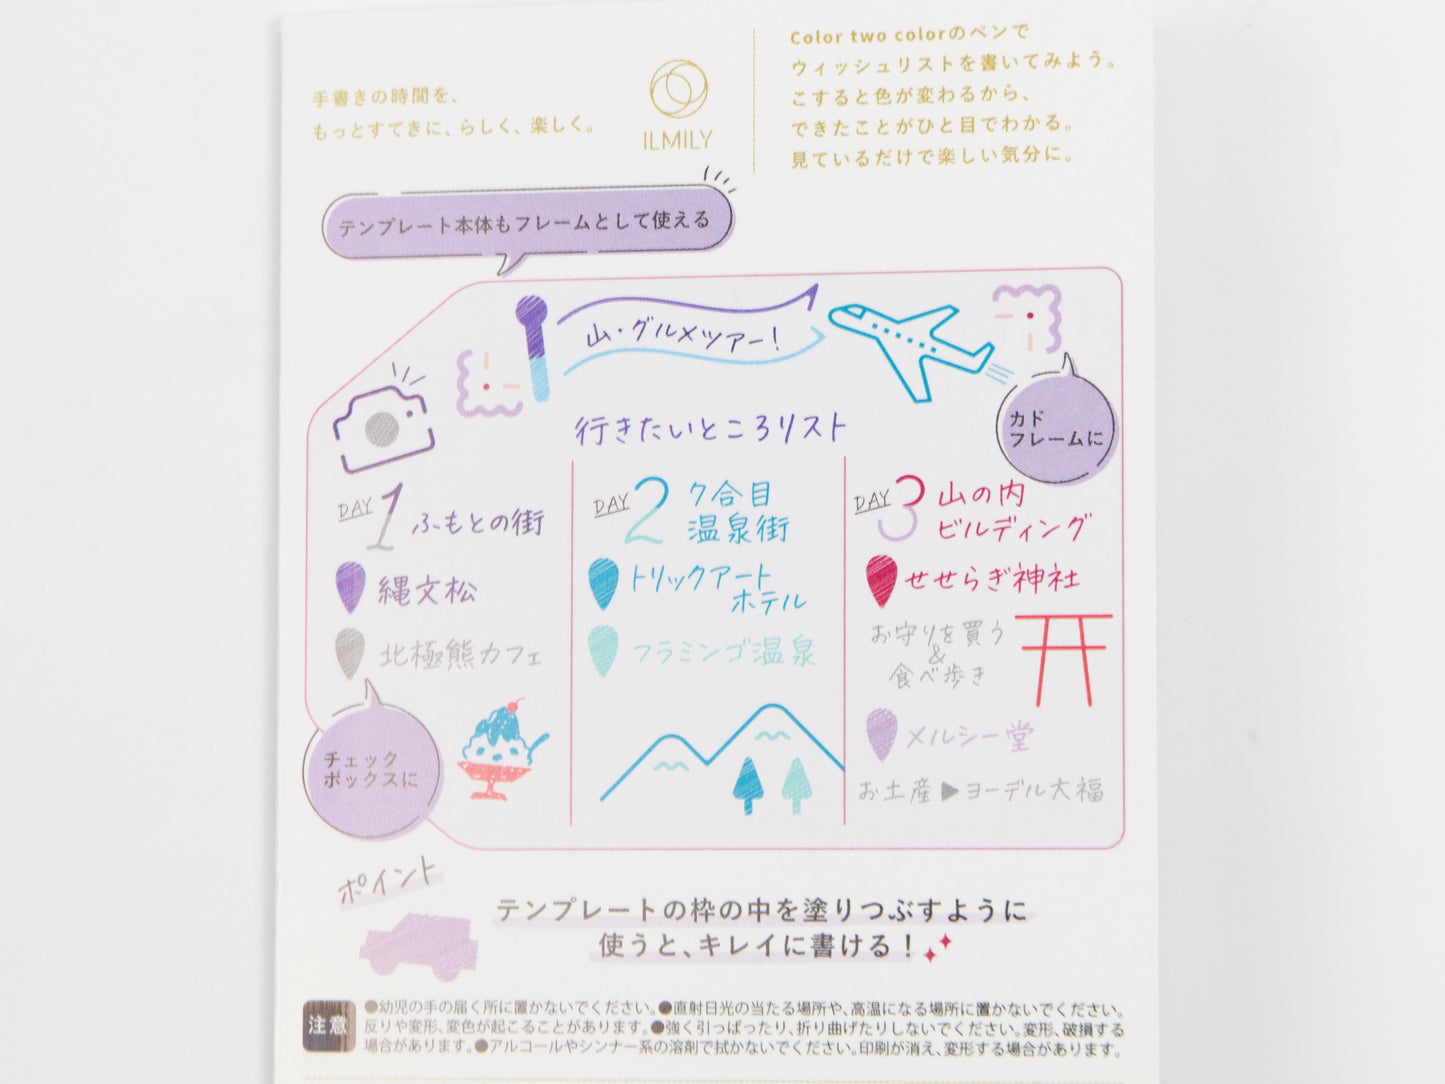 手書きの時間を、
もっとすてきに、らしく、楽しく。
ILMILY
Color two colorのペンで
ウィッシュリストを書いてみよう。
こすると色が変わるから、
できたことがひと目でわかる。
見ているだけで楽しい気分に。
テンプレート本体もフレームとして使える
山・グルメツアー!
カド
フレームに
行きたいところリスト
DAY 1 ふもとの街
縄文松
北極熊カフェ
チェック
ボックスに
DAY 2 7合目
温泉街
トリックアート
ホテル
フラミンゴ温泉
DAY 3 山の内
ビルディング
せせらぎ神社
お守りを買う
&
食べ歩き
メルシー堂
お土産▶ヨーデル大福
ポイント
テンプレートの枠の中を塗りつぶすように
使うと、キレイに書ける!
注意
●幼児の手の届く所に置かないでください。●直射日光の当たる場所や、高温になる場所に置かないでください。
反りや変形、変色が起こることがあります。●強く引っぱったり、折り曲げたりしないでください。変形、破損する
場合があります。●アルコールやシンナー系の溶剤で拭かないでください。印刷が消え、変形する場合があります。